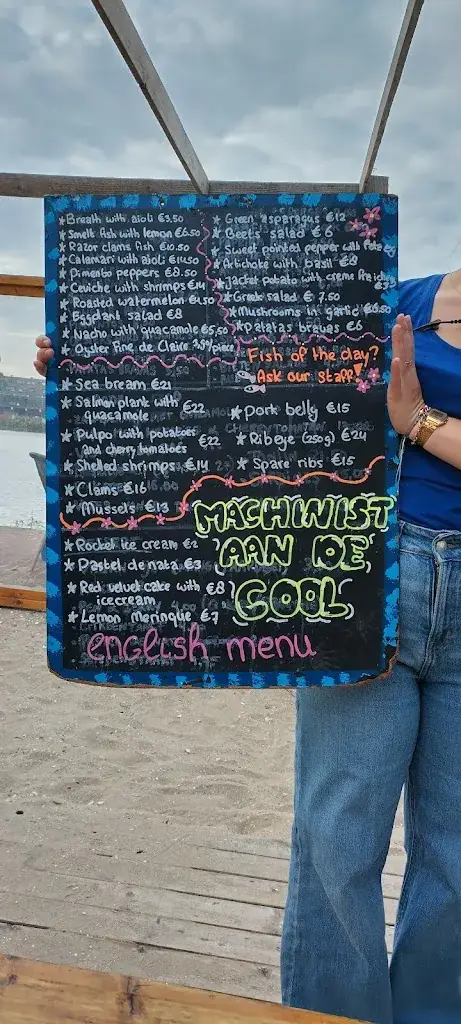 * Breath with aioli €3.50
* Smelt fish with lemon €6.50
* Razor clams fish €10.50
* Calamari with aioli €11.50
* Pimento peppers €8.50
* Ceviche with shrimps €14
* Roasted watermelon €4.50
* Eggplant salad €8
* Nacho with guacamole €5,50
* Oyster Fine de Claire piece
* Green asparagus €12
* Beets salad €6
* Sweet pointed pepper with
* Artichoke with basil €8
* Jacket potato with creme
* Greek salad € 7.50
* Mushrooms in garlic
* Patatas bravas €6
Fish of the day?
Ask our staff!
* Sea bream €21
* Salmon plank with
guacamole €22
* Pulpo with potatoes
and cherry tomatoes €22
* Shelled shrimps €14
* Clams €16
* Mussels €13
* Pork belly €15
* Ribeye (250g) €24
* Spare ribs €15
* Rocket ice cream €2
* Pastel de nata €3
* Red velvet cake with €8
icecream
* Lemon Meringue €7
MACHINIST
AAN DE
GOOL
english menu